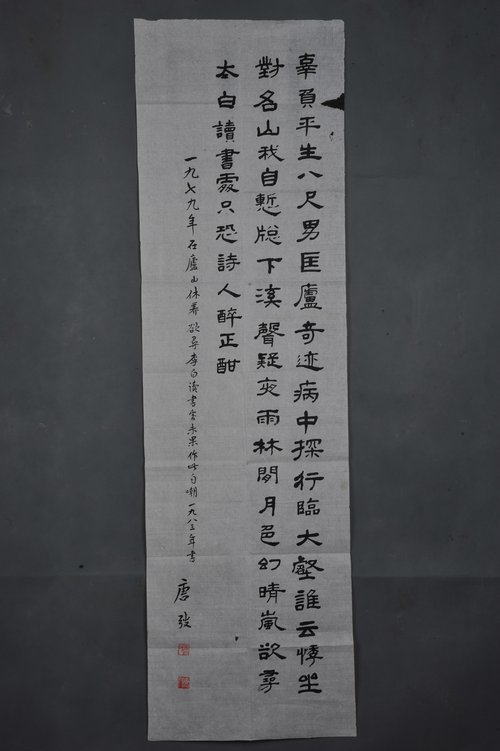 辜負平生八尺男匡廬奇迹病中探行臨大壑誰云悸坐
對名山我自慙牕下溪聲疑夜雨林間月色幻晴嵐欲尋
太白讀書處只恐詩人醉正酣
一九七九年在廬山休養欲尋李白读書未果作此自嘲一九八三年書
唐弢